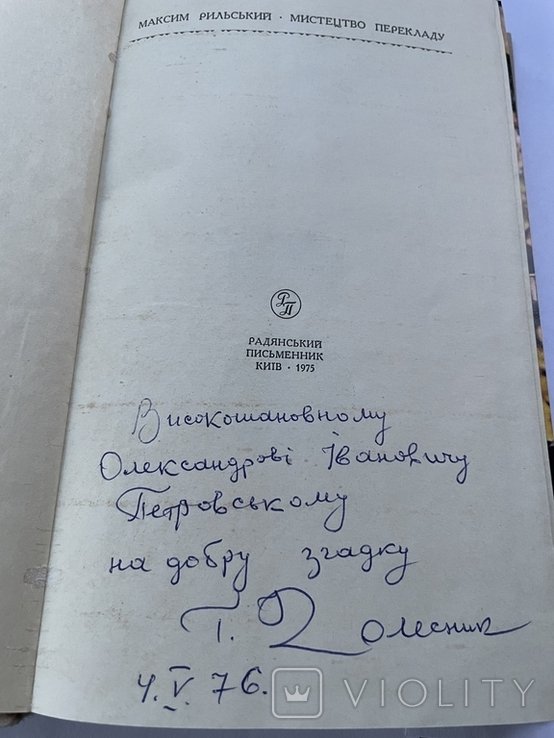 МАКСИМ РИЛЬСЬКИЙ · МИСТЕЦТВО ПЕРЕКЛАДУ
РП
РАДЯНСЬКИЙ
ПИСЬМЕННИК
КИЇВ · 1975
Високошановному
Олександрові Івановичу
Петровському
на добру згадку
Г. Колесник
4. V. 76.
VIOLITY